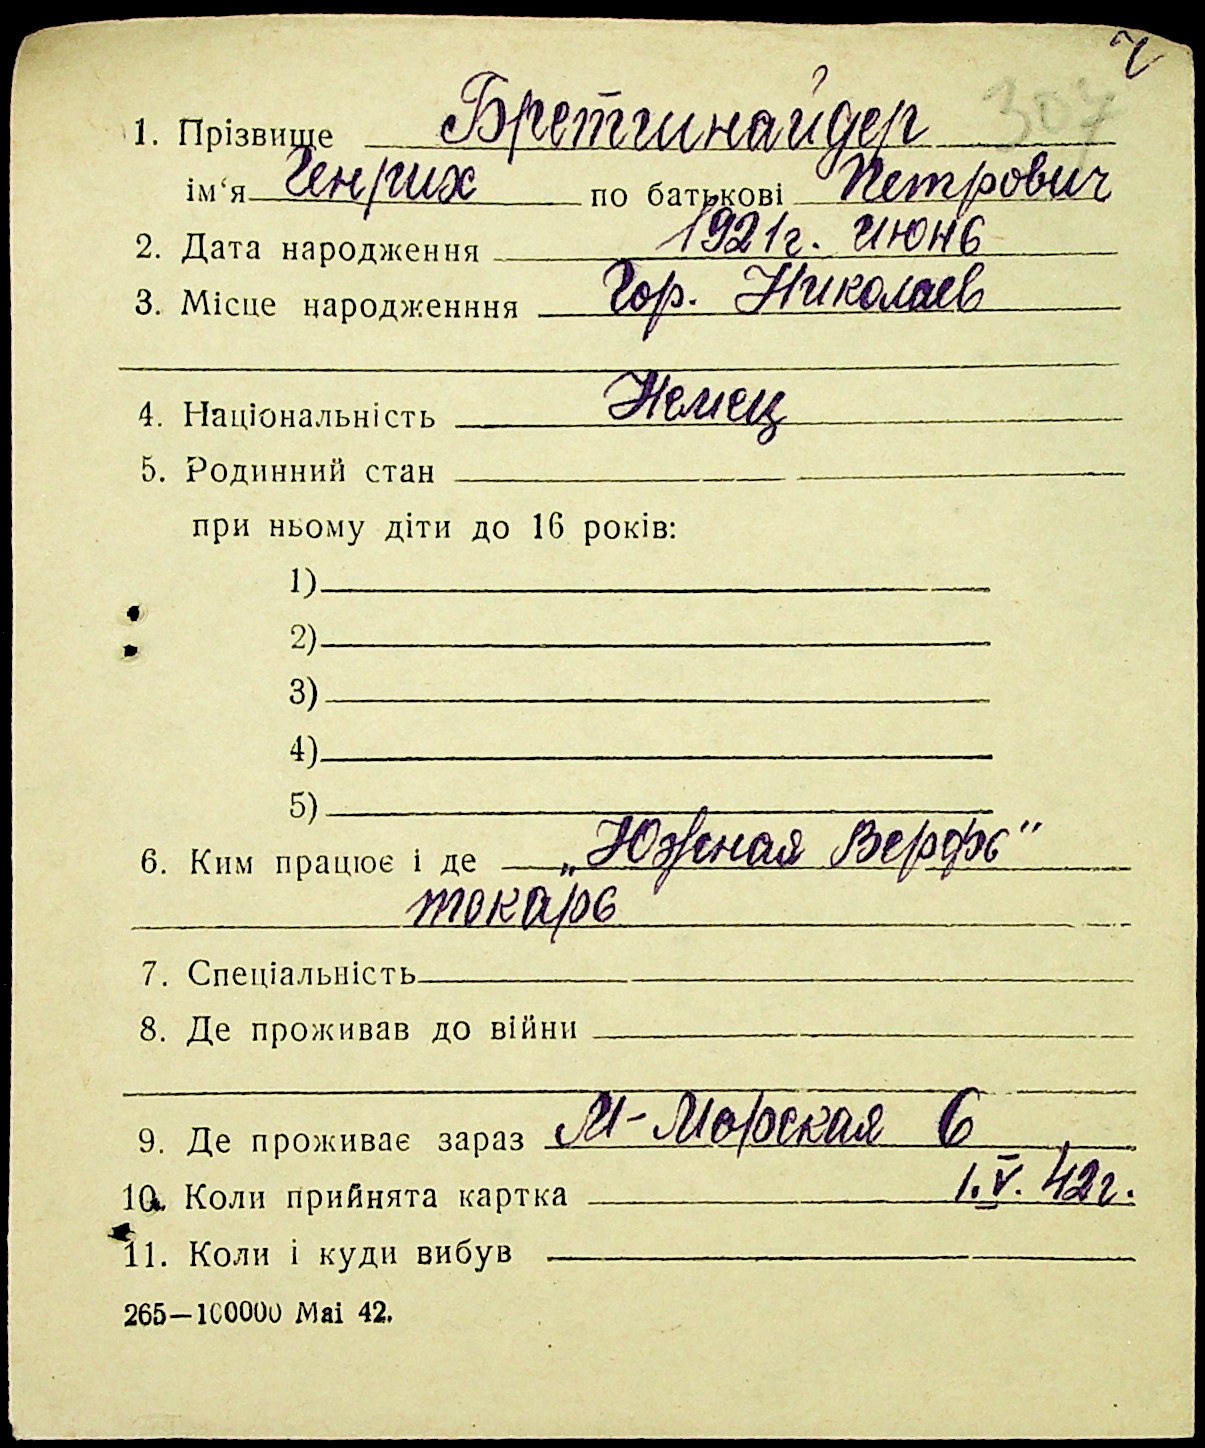 307
1. Прізвище Бретшнайдер
ім‘я Генрих по батькові Петрович
2. Дата народження 1921г. июнь
3. Місце народженння Гор. Николаев
4. Національність Немец
5. Родинний стан
при ньому діти до 16 років:
1)
2)
3)
4)
5)
6. Ким працює і де „Южная Верфь"
токарь
7. Спеціальність
8. Де проживав до війни
9. Де проживає зараз М-Морская 6
10. Коли прийнята картка 1.V.42г.
11. Коли і куди вибув
265—100000 Mai 42.